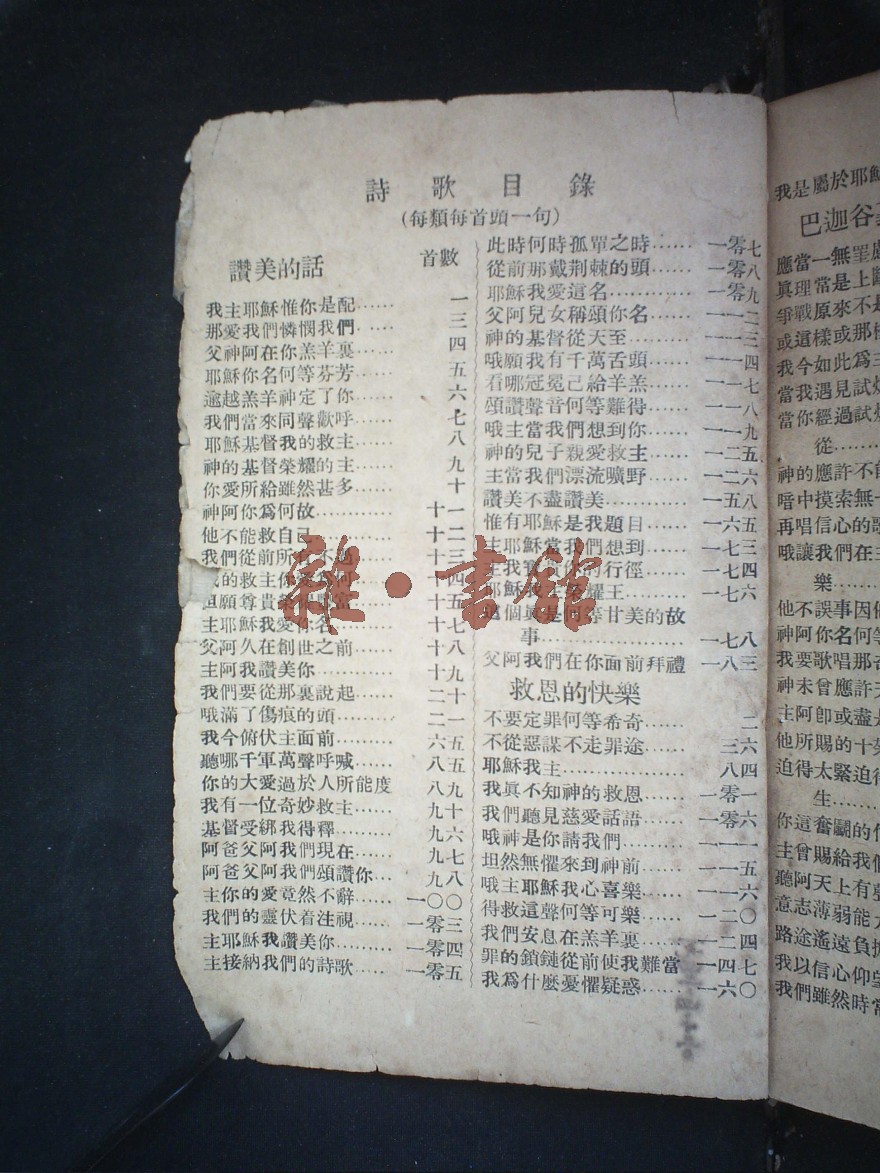 詩歌目錄
(每類每首頭一句)
讚美的話 首數
我主耶穌惟你是配…… 一
那愛我們憐憫我們…… 三
父神阿在你羔羊裏…… 四
耶穌你名何等芬芳…… 五
逾越羔羊神定了你…… 六
我們當來同聲歡呼…… 七
耶穌基督我的救主…… 八
神的基督榮耀的主…… 九
你愛所給雖然甚多…… 十
神阿你為何故……… 十一
他不能救自己 十二
我們從前所 十三
的救主你 十四
但願尊貴 十五
主耶穌我愛你名…… 十七
父阿久在創世之前…… 十八
主阿我讚美你……… 十九
我們要從那裏說起…… 二十
哦滿了傷痕的頭……… 二一
我今俯伏主面前……… 六五
聽哪千軍萬聲呼喊…… 八五
你的大愛過於人所能度 八九
我有一位奇妙救主…… 九十
基督受綁我得釋……… 九六
阿爸父阿我們現在…… 九七
阿爸父阿我們頌讚你… 九八
主你的愛竟然不辭…… 一〇〇
我們的靈伏着注視…… 一零三
主耶穌我讚美你……… 一零四
主接納我們的詩歌…… 一零五
此時何時孤單之時…… 一零七
從前那戴荆棘的頭…… 一零八
耶穌我愛這名……… 一零九
父阿兒女稱頌你名…… 一一二
神的基督從天至……… 一一三
哦願我有千萬舌頭…… 一一四
看哪冠冕己給羊羔…… 一一七
頌讚聲音何等難得…… 一一八
哦主當我們想到你…… 一一九
神的兒子親愛救主…… 一二五
主當我們漂流曠野…… 一二六
讚美不盡讚美……… 一五八
惟有耶穌是我題目…… 一六五
主耶穌當我們想到…… 一七三
主我 你的行徑…… 一七四
耶穌我主榮耀王…… 一七六
這個真是何等甘美的故
事…………… 一七八
父阿我們在你面前拜禮 一八三
救恩的快樂
不要定罪何等希奇…… 二
不從惡謀不走罪途…… 三六
耶穌我主…………… 八四
我真不知神的救恩…… 一零一
我們聽見慈愛話語…… 一零六
哦神是你請我們……… 一一一
坦然無懼來到神前…… 一一五
哦主耶穌我心喜樂…… 一一六
得救這聲何等可樂…… 一二〇
我們安息在羔羊裏…… 一二四
罪的鎖鏈從前使我難當 一四七
我為什麼憂懼疑惑…… 一六〇
雜·書館
我是屬於耶穌
巴迦谷
應當一無罣慮
真理當是上
爭戰原來不是
或這樣或那樣
我今如此為主
當我遇見試
當你經過試
從……
神的應許不能
暗中摸索無
再唱信心的歌
哦讓我們在主
樂……
他不誤事因他
神阿你名何等
我要歌唱那
神未曾應許天
主阿卽或盡是
他所賜的十架
迫得太緊迫得
生……
你這奮鬭的
主曾賜給我們
聽阿天上有聲
意志薄弱能力
路途遙遠負擔
我以信心仰望
我們雖然時常